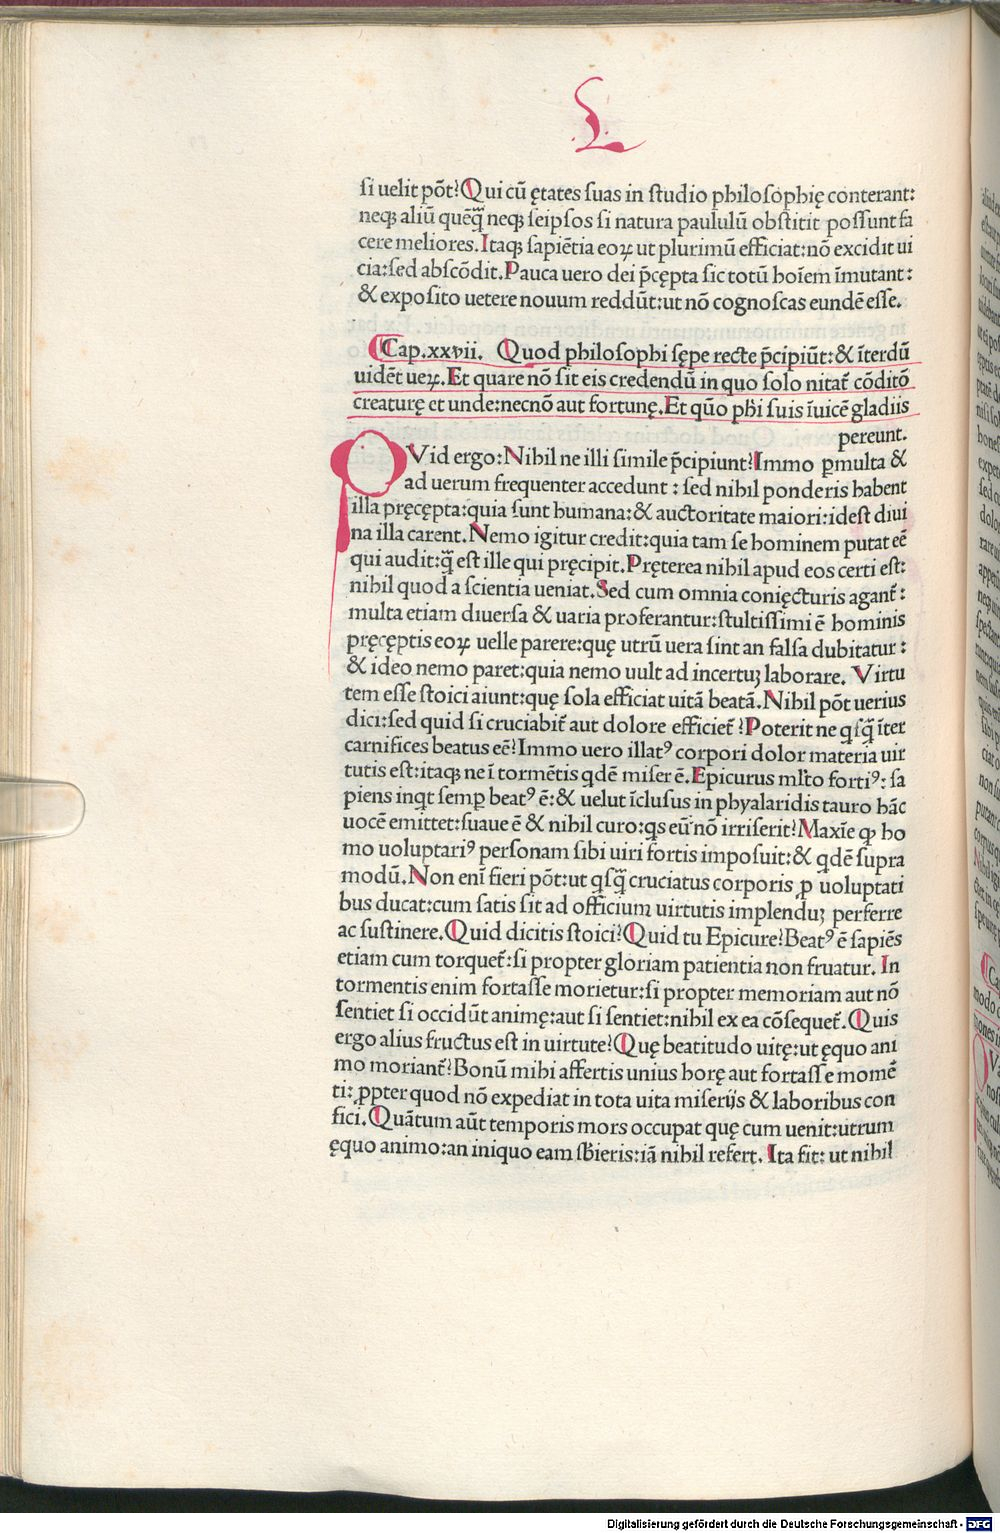 L
si uelit põt?Qui cũ ętates suas in studio philosophię conterant:
neqꝫ aliũ quēq̃ȝ neqꝫ seipsos si natura paululũ obstitit possunt fa
cere meliores.Itaqꝫ sapiētia eoꝝ ut plurimũ efficiat:nõ excidit ui
cia:sed abscõdit.Pauca uero dei p̃cępta sic totũ hoīem īmutant:
& exposito uetere nouum reddũt:ut nõ cognoscas eundē esse.
Cap.xxvii. Quod philosophi sępe recte p̃cipiũt:& īterdũ
uidēt ueꝝ.Et quare nõ sit eis credendũ in quo solo nitat᷑ cõditõ
creaturę et unde:necnõ aut fortunę.Et quõ phī suis īuicē gladiis
pereunt.
QVid ergo:Nihil ne illi simile p̃cipiunt?Immo ꝑmulta &
ad uerum frequenter accedunt : sed nihil ponderis habent
illa pręcępta:quia sunt humana:& auctoritate maiori:idest diui
na illa carent.Nemo igitur credit:quia tam se hominem putat eē
qui audit:q̃ȝ est ille qui pręcipit.Pręterea nihil apud eos certi est:
nihil quod a scientia ueniat.Sed cum omnia conięcturis agant᷑:
multa etiam diuersa & uaria proferantur:stultissimi ē hominis
pręcęptis eoꝝ uelle parere:quę utrũ uera sint an falsa dubitatur:
& ideo nemo paret:quia nemo uult ad incertuꝫ laborare. Virtu
tem esse stoici aiunt:quę sola efficiat uitā beatā.Nihil põt uerius
dici:sed quid si cruciabit᷑ aut dolore efficiet᷑?Poterit ne qſq̃ȝ īter
carnifices beatus eē?Immo uero illatꝰ corpori dolor materia uir
tutis est:itaqꝫ ne ī tormētis qdē miser ē.Epicurus ml̃to fortiꝰ: sa
piens inqt semꝑ beatꝰ ē:& uelut īclusus in phyalaridis tauro hāc
uocē emittet:suaue ē & nihil curo:qs eũ nõ irriserit?Maxīe ꝙ ho
mo uoluptariꝰ personam sibi uiri fortis imposuit:& qdē supra
modũ.Non enī fieri põt:ut qſq̃ȝ cruciatus corporis ꝓ uoluptati
bus ducat:cum satis sit ad officium uirtutis implenduꝫ perferre
ac sustinere.Quid dicitis stoici?Quid tu Epicure?Beatꝰ ē sapiēs
etiam cum torquet᷑:si propter gloriam patientia non fruatur. In
tormentis enim fortasse morietur:si propter memoriam aut nõ
sentiet si occidũt animę:aut si sentiet:nihil ex ea cõsequet᷑.Quis
ergo alius fructus est in uirtute?Quę beatitudo uitę:ut ęquo ani
mo moriant᷑?Bonũ mihi affertis unius horę aut fortasse momē
ti:ꝓpter quod nõ expediat in tota uita miserijs & laboribus con
fici.Quātum aũt temporis mors occupat quę cum uenit:utrum
ęquo animo:an iniquo eam sbieris:iā nihil refert. Ita fit: ut nihil
Digitalisierung gefördert durch die Deutsche Forschungsgemeinschaft - DFG